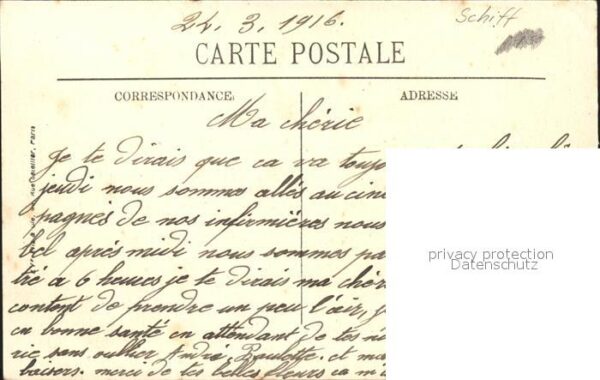 24. 3. 1916.
Schiff
CARTE POSTALE
CORRESPONDANCE
ADRESSE
Ma chérie
Je te dirais que ca va toujo
jeudi nous sommes allés au cine
pagnés de nos infirmières nous
bel après midi nous sommes pa
tré a 6 heures je te dirais ma chér
content de prendre un peu l'air, j
en bonne santé en attendant je
rie sans oublier André, Paulette, et ma
baisers. merci de tes belles fleurs ca m'
privacy protection
Datenschutz
Paris